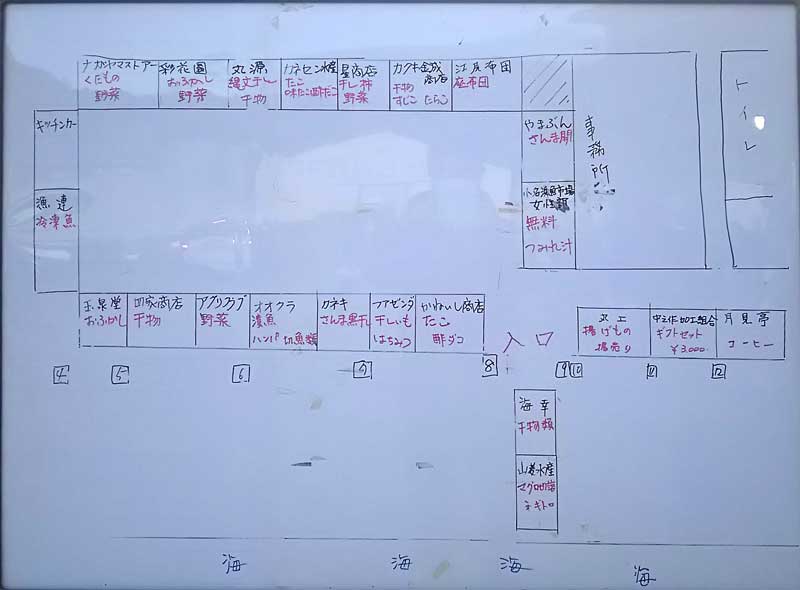 ナガヤマストアー
くだもの
野菜
彩花園
おふかし
野菜
丸源
縄文干し
干物
カネセン水産
たこ
味たこ酢たこ
星商店
干し柿
野菜
カクキ金成
商店
干物
すじこ たらこ
江尻布団
座布団
キッチンカー
漁連
冷凍魚
やまぶん
さんま開
小名浜魚市場
女性部
無料
つみれ汁
事務所
トイレ
玉泉堂
おふかし
四家商店
干物
アグリクラブ
野菜
オオクラ
濱魚
ハンパ切魚類
カネキ
さんま黒干し
ファゼンダ
干しいも
はちみつ
かねいし商店
たこ
酢ダコ
入口
丸工
揚げもの
場売り
ギフトセット
¥3,000
月見亭
コーヒー
4
5
6
7
8
9
10
11
12
海幸
干物類
山菱水産
マグロ切落
ネギトロ
海
海
海
海